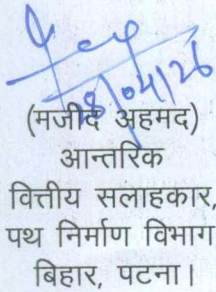 18/04/26
(मजीद अहमद)
आन्तरिक
वित्तीय सलाहकार,
पथ निर्माण विभाग
बिहार, पटना।